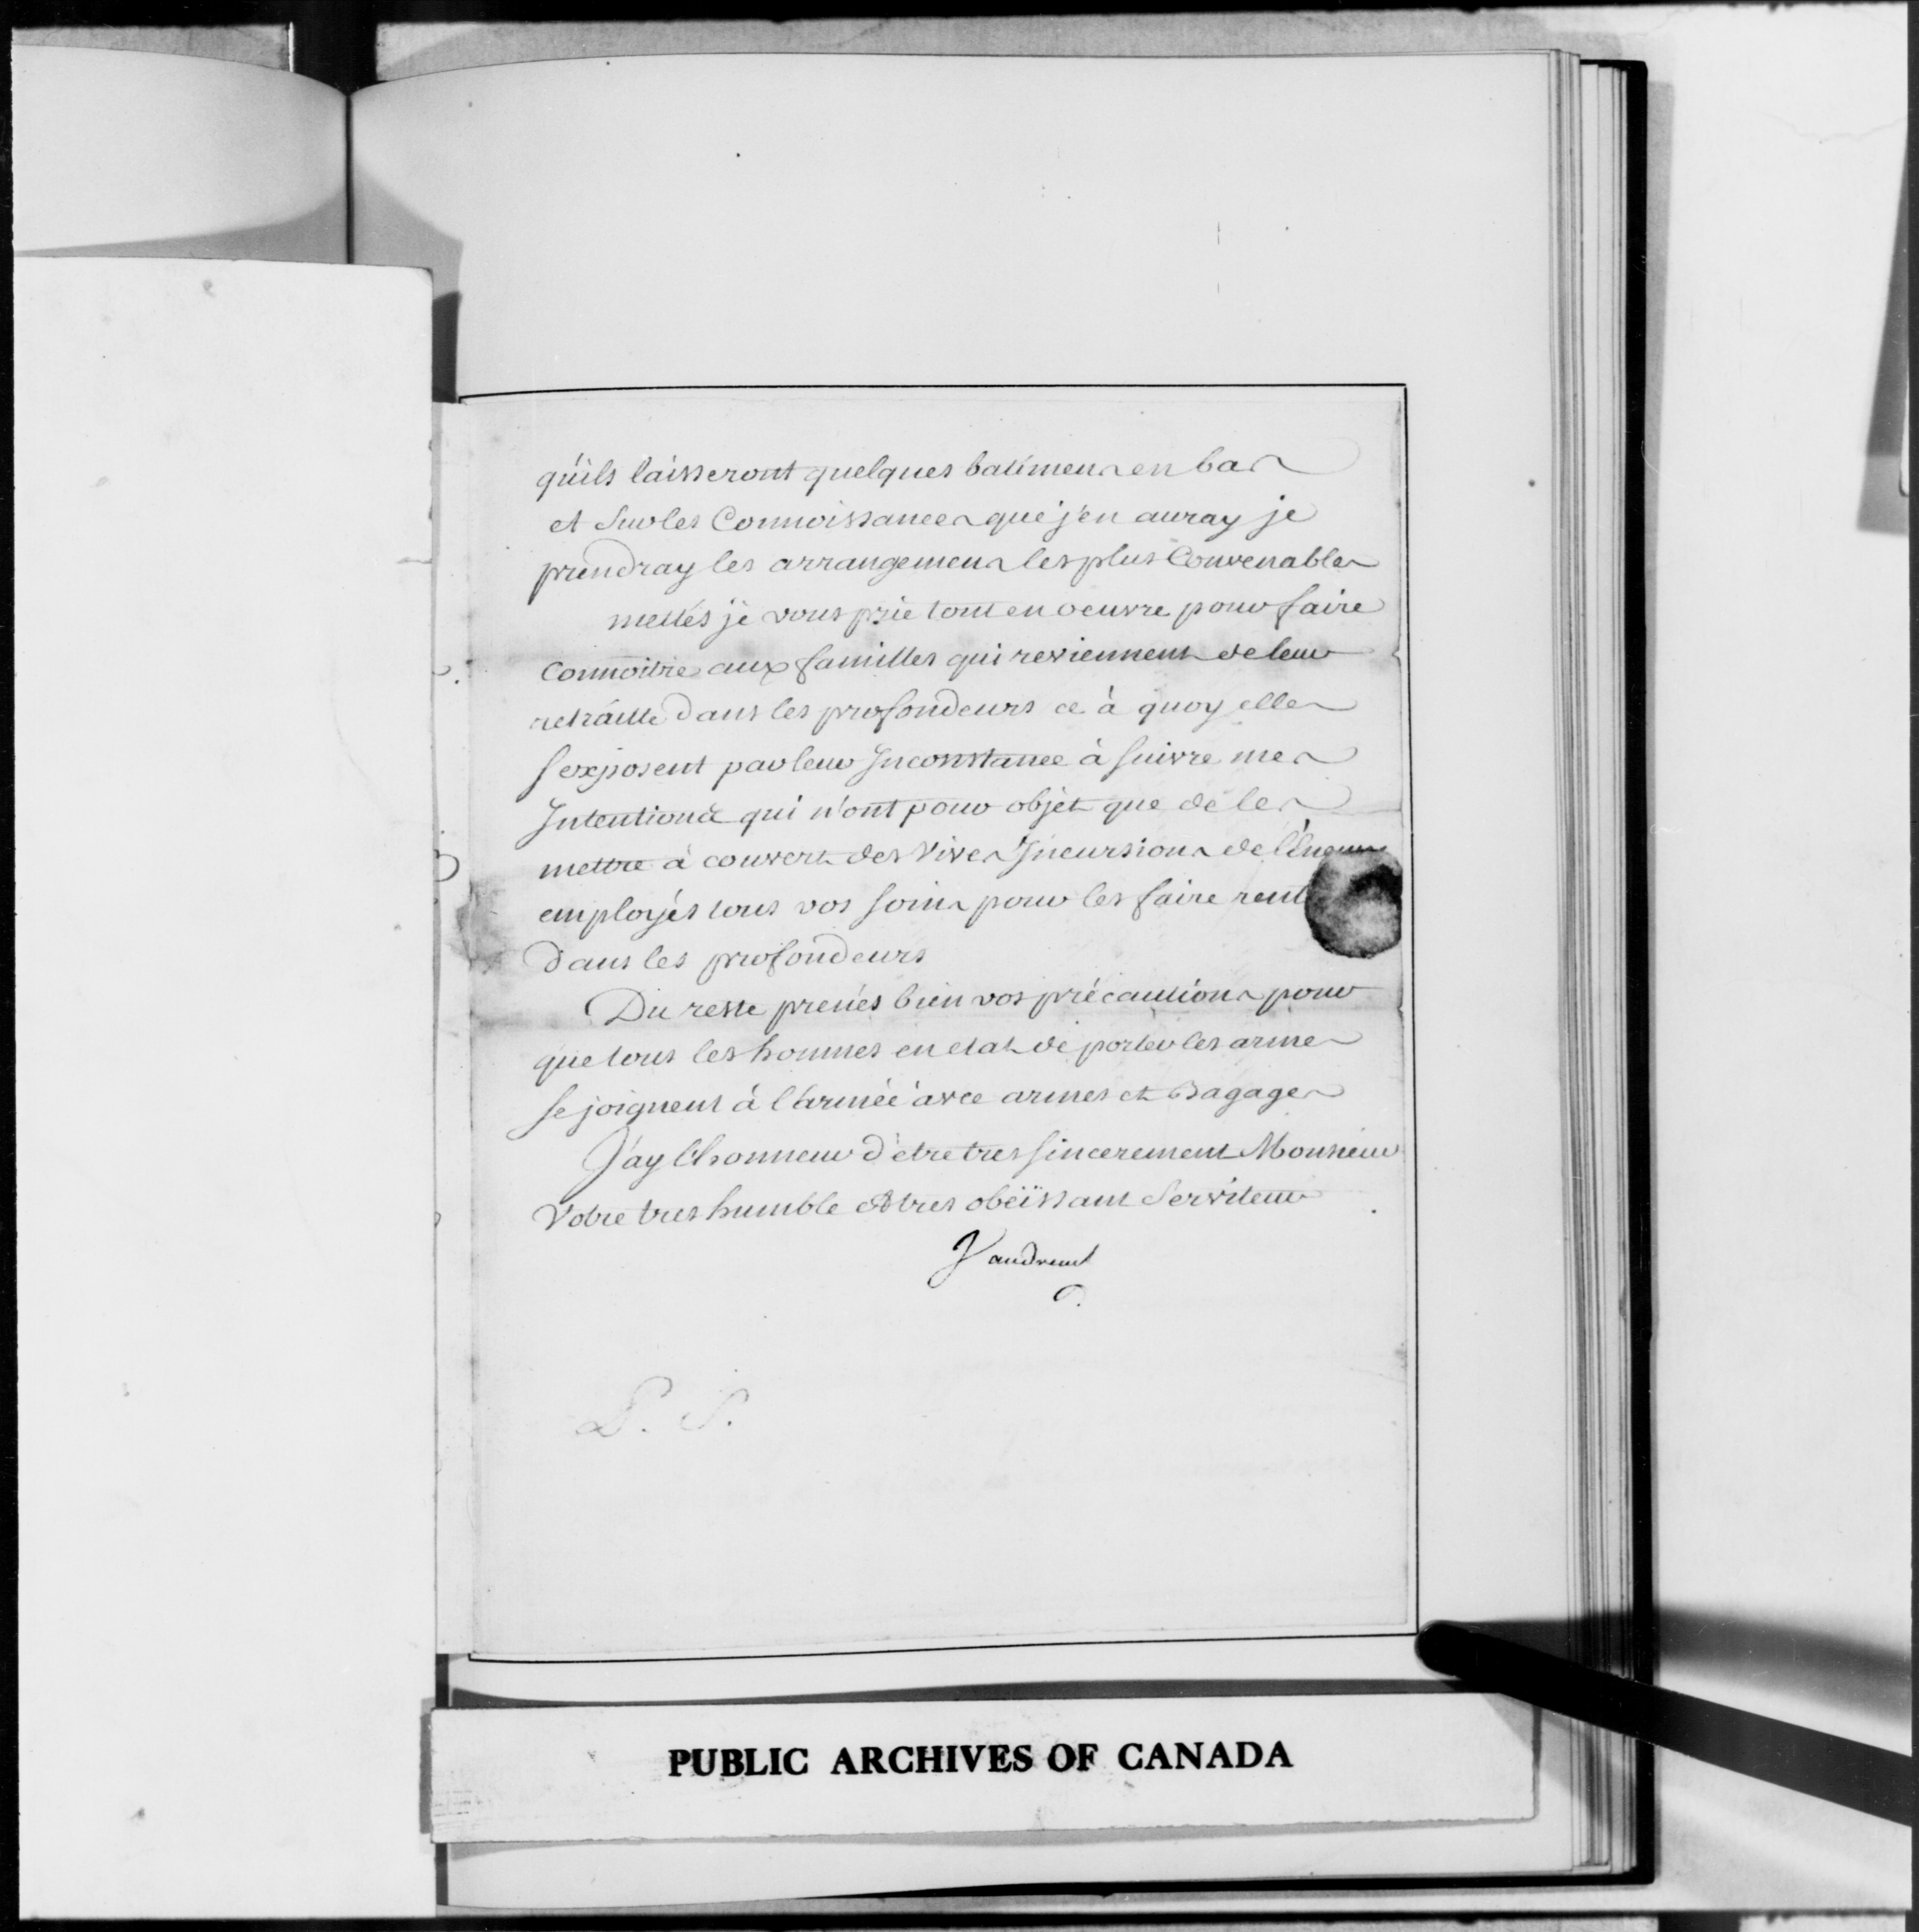 qu'ils laisseront quelques batimens en bas
et Sur les Connoissances que j'en auray je
prendray les arrangemens les plus Convenables
mettés je vous prie tout en oeuvre pour faire
Connoitre aux familles qui reviennent de leur
retraitte dans les profondeurs ce à quoy elles
s'exposent par leur Inconstance à suivre mes
Intentions qui n'ont pour objet que de les
mettre à couvert des vives Incursions de l'énemi
employés tous vos soins pour les faire rent
dans les profondeurs
Du reste prenés bien vos précautions pour
que tous les hommes en etat de porter les armes
se joignent à l'armée avec armes et Bagages
J'ay l'honneur d'être tres sincerement Monsieur
Votre tres humble et tres obéïssant Serviteur
Vaudreuil
P. S.
PUBLIC ARCHIVES OF CANADA